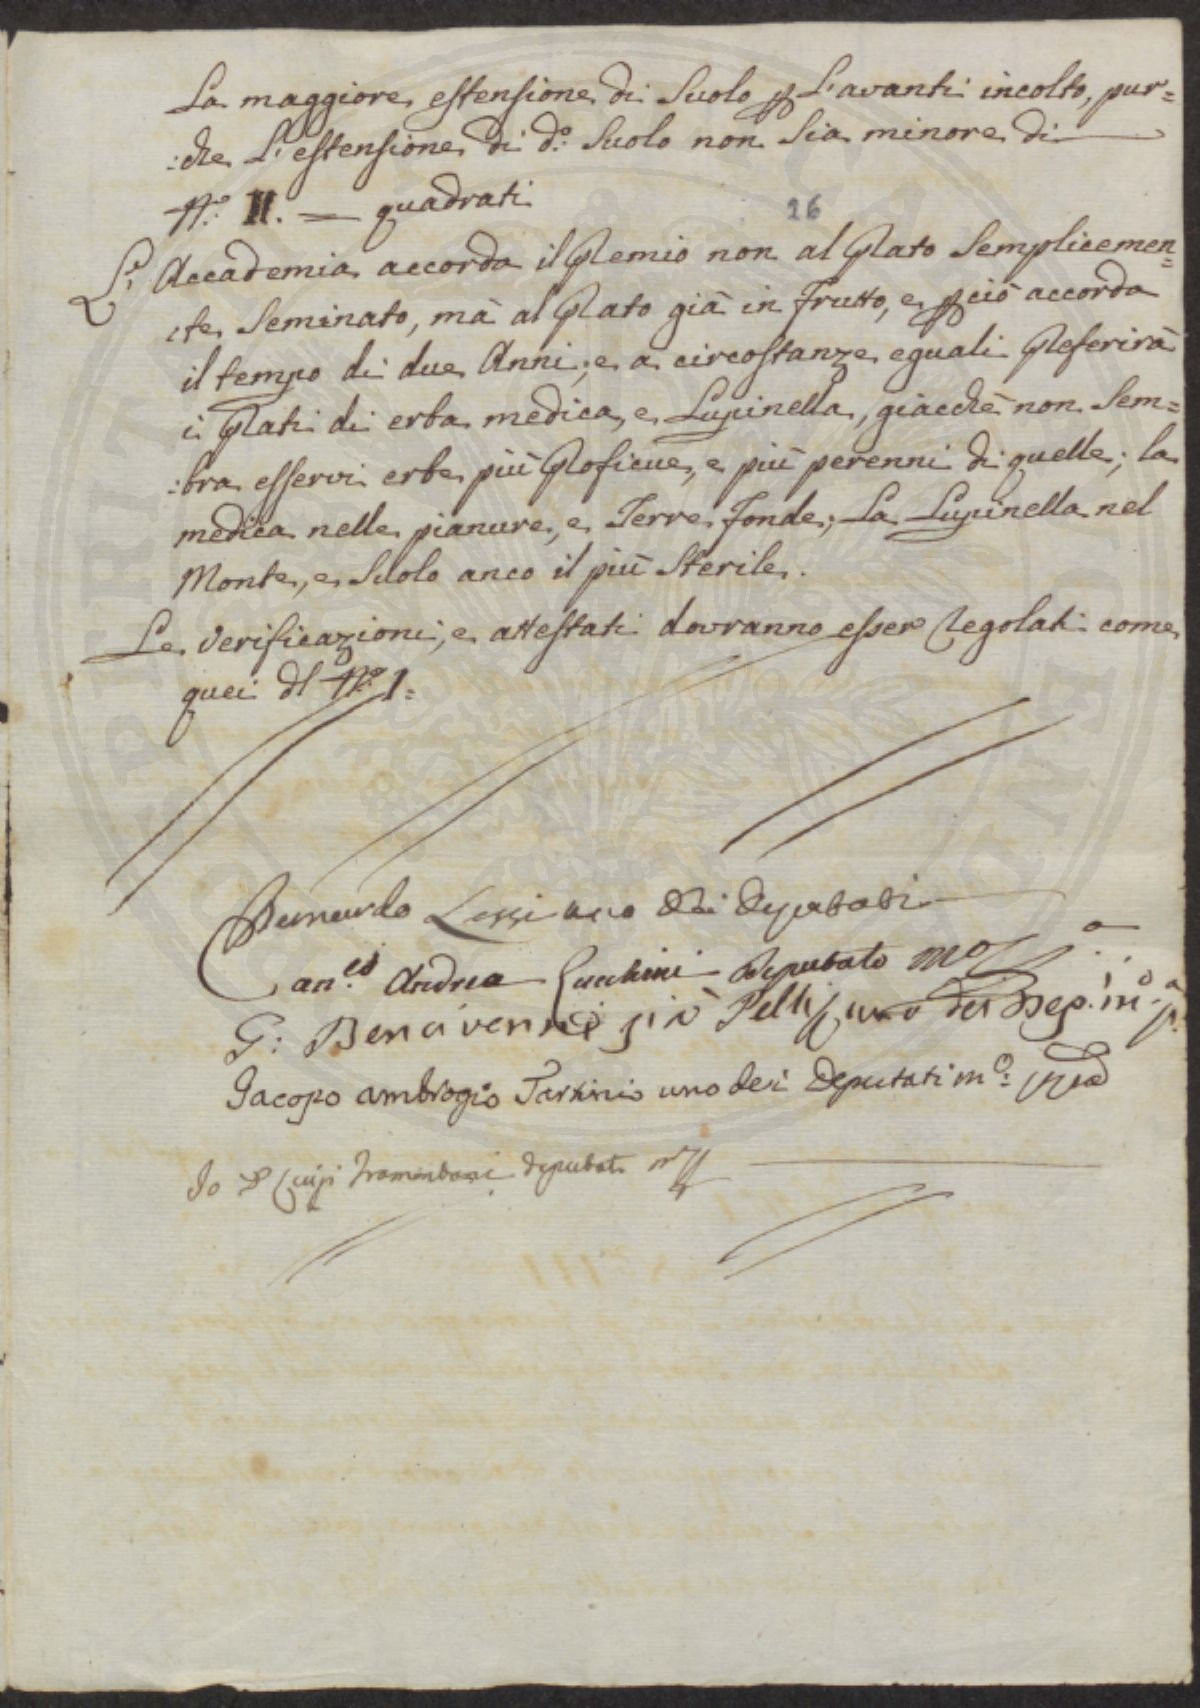 La maggiore estensione di Suolo p L'avanti incolto, pur=
:che L'estensione di d.º Suolo non Sia minore di
N.º II. — quadrati
26
L'Accademia accorda il Premio non al Prato Semplicemen=
:te Seminato, mà al Prato già in Frutto, e pciò accorda
il tempo di due Anni; e a circostanze eguali Preferirà
i Prati di erba medica, e Lupinella, giacchè non Sem=
:bra esservi erbe più Proficue, e più perenni di quelle; la
medica nelle pianure, e Terre fonde; La Lupinella nel
Monte, e Suolo anco il più Sterile.
Le Verificazioni, e attestati dovranno esser Regolati come
quei dl N.º I.=
Bernardo Lessi uno dei Deputati
Can.co Andrea Zucchini Deputato mo
G: Bencivenni già Pelli uno dei Dep. m.º p.ª
Jacopo ambrogio Tartini uno dei Deputati m.º
Io D Luigi Tramontani deputato